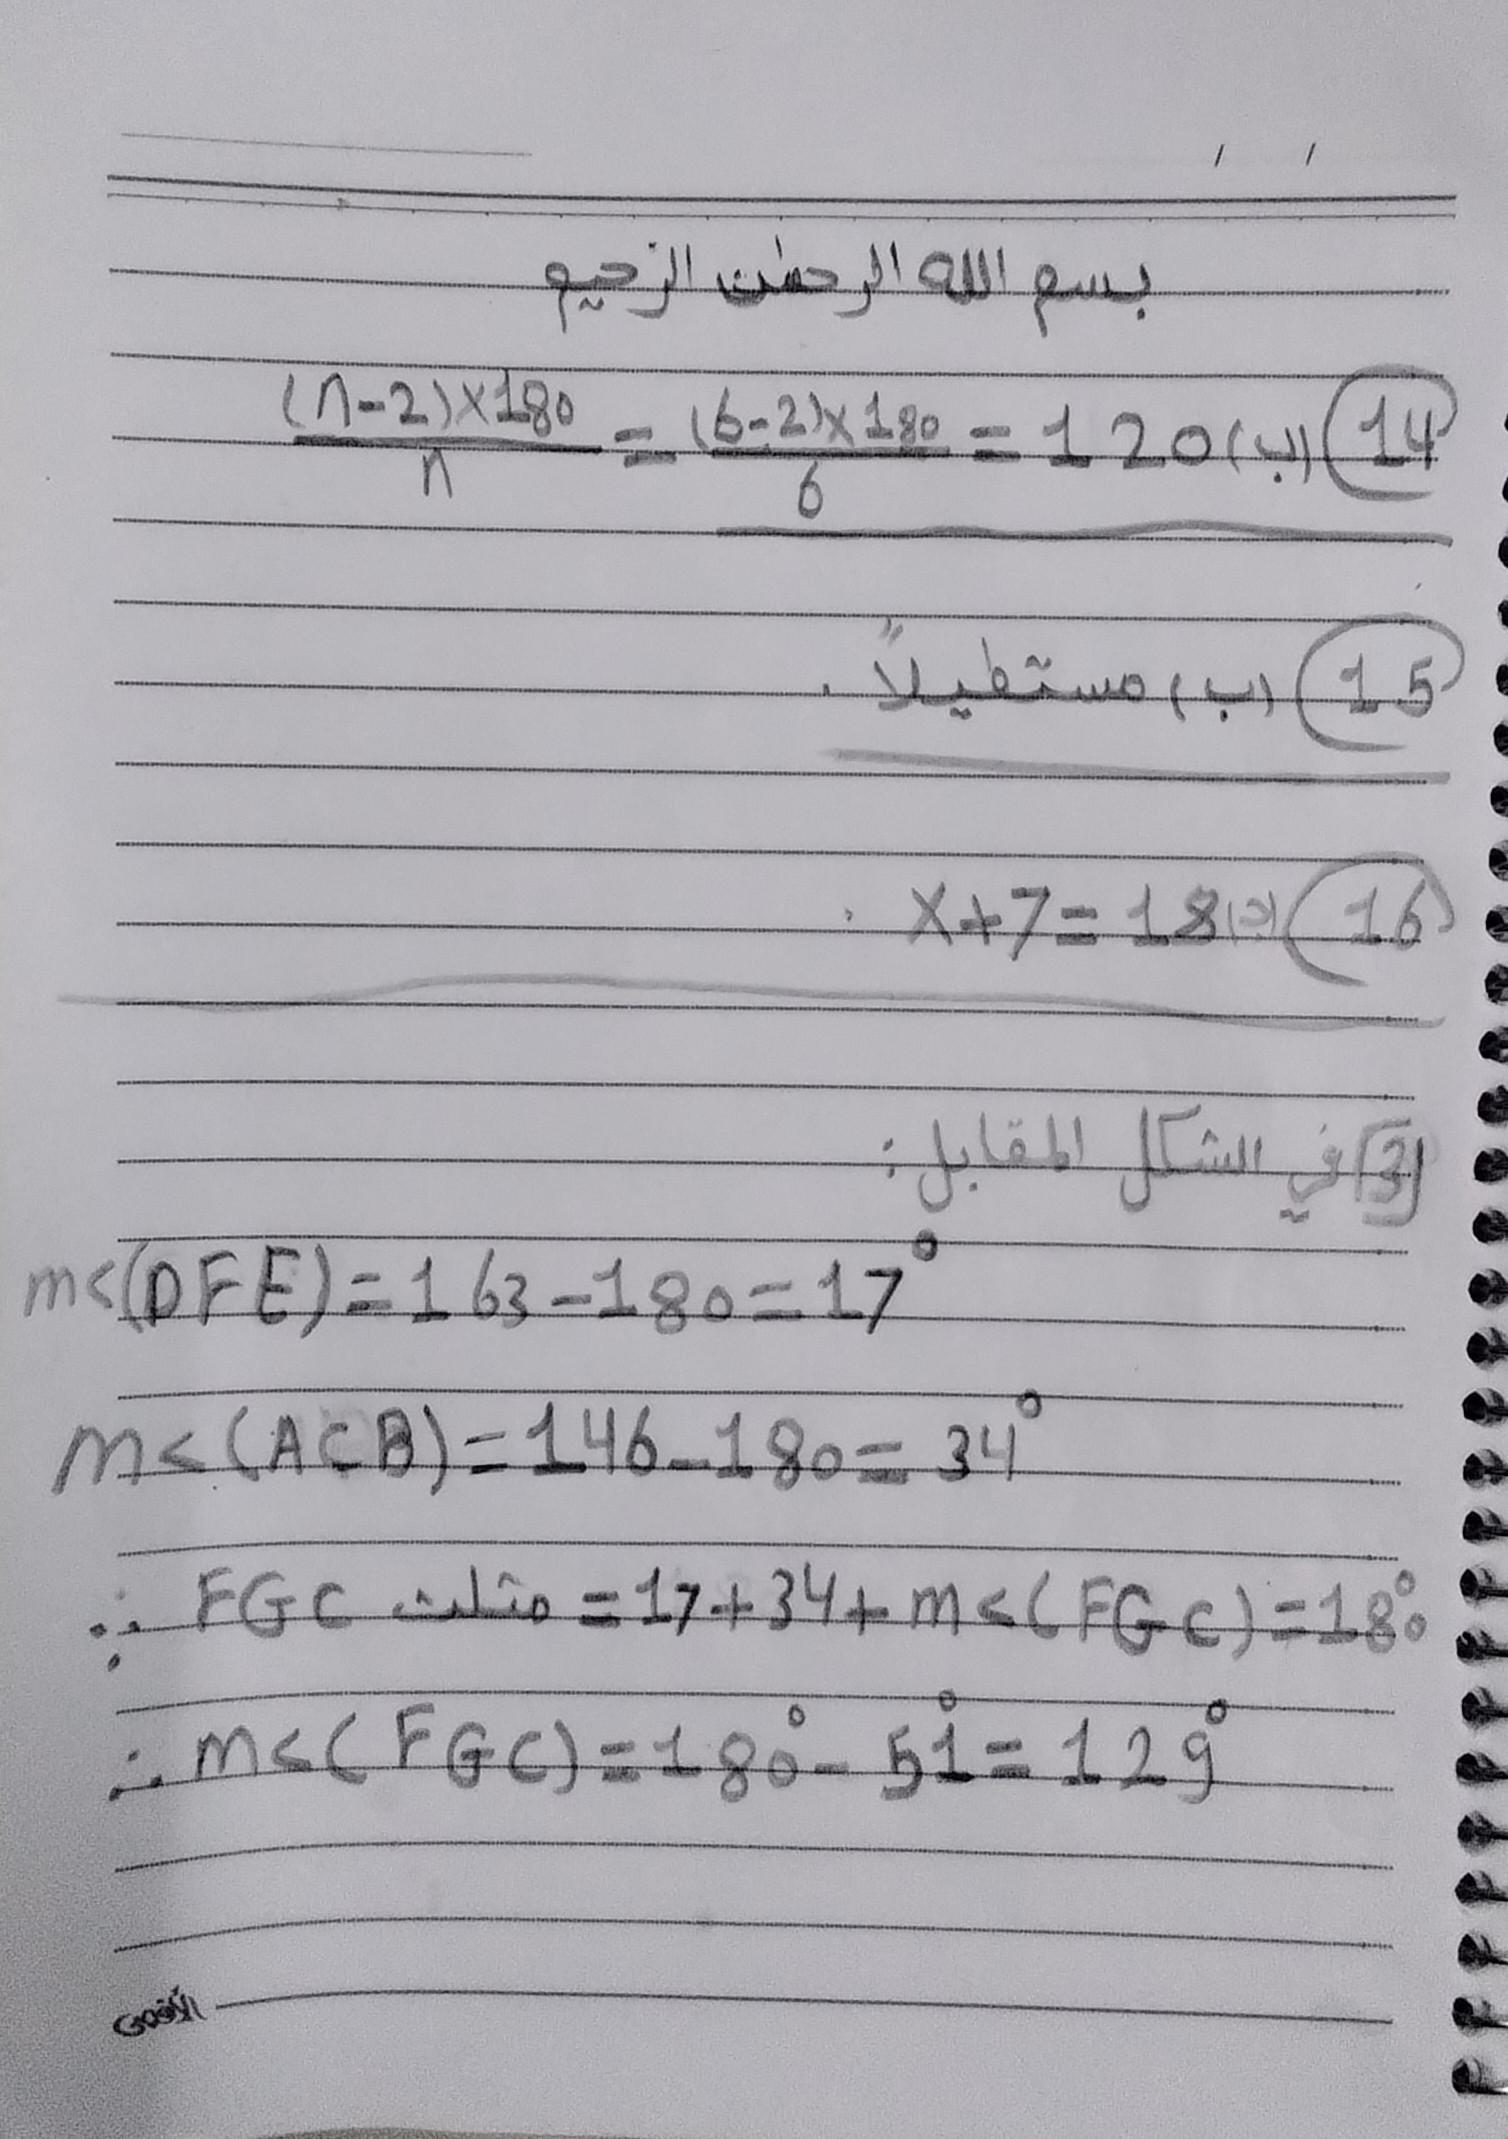 بسم الله الرحمٰن الرحيم
14 (ب) (n-2)×180/n = (6-2)×180/6 = 120
15 (ب) مستطيلاً.
16 (د) x+7=18
[3] في الشكل المقابل:
m<(DFE)=163-180=17°
m<(ACB)=146-180=34°
∴ FGC مثلث =17+34+m<(FGC)=180°
∴ m<(FGC)=180°-51°=129°
الأقصى